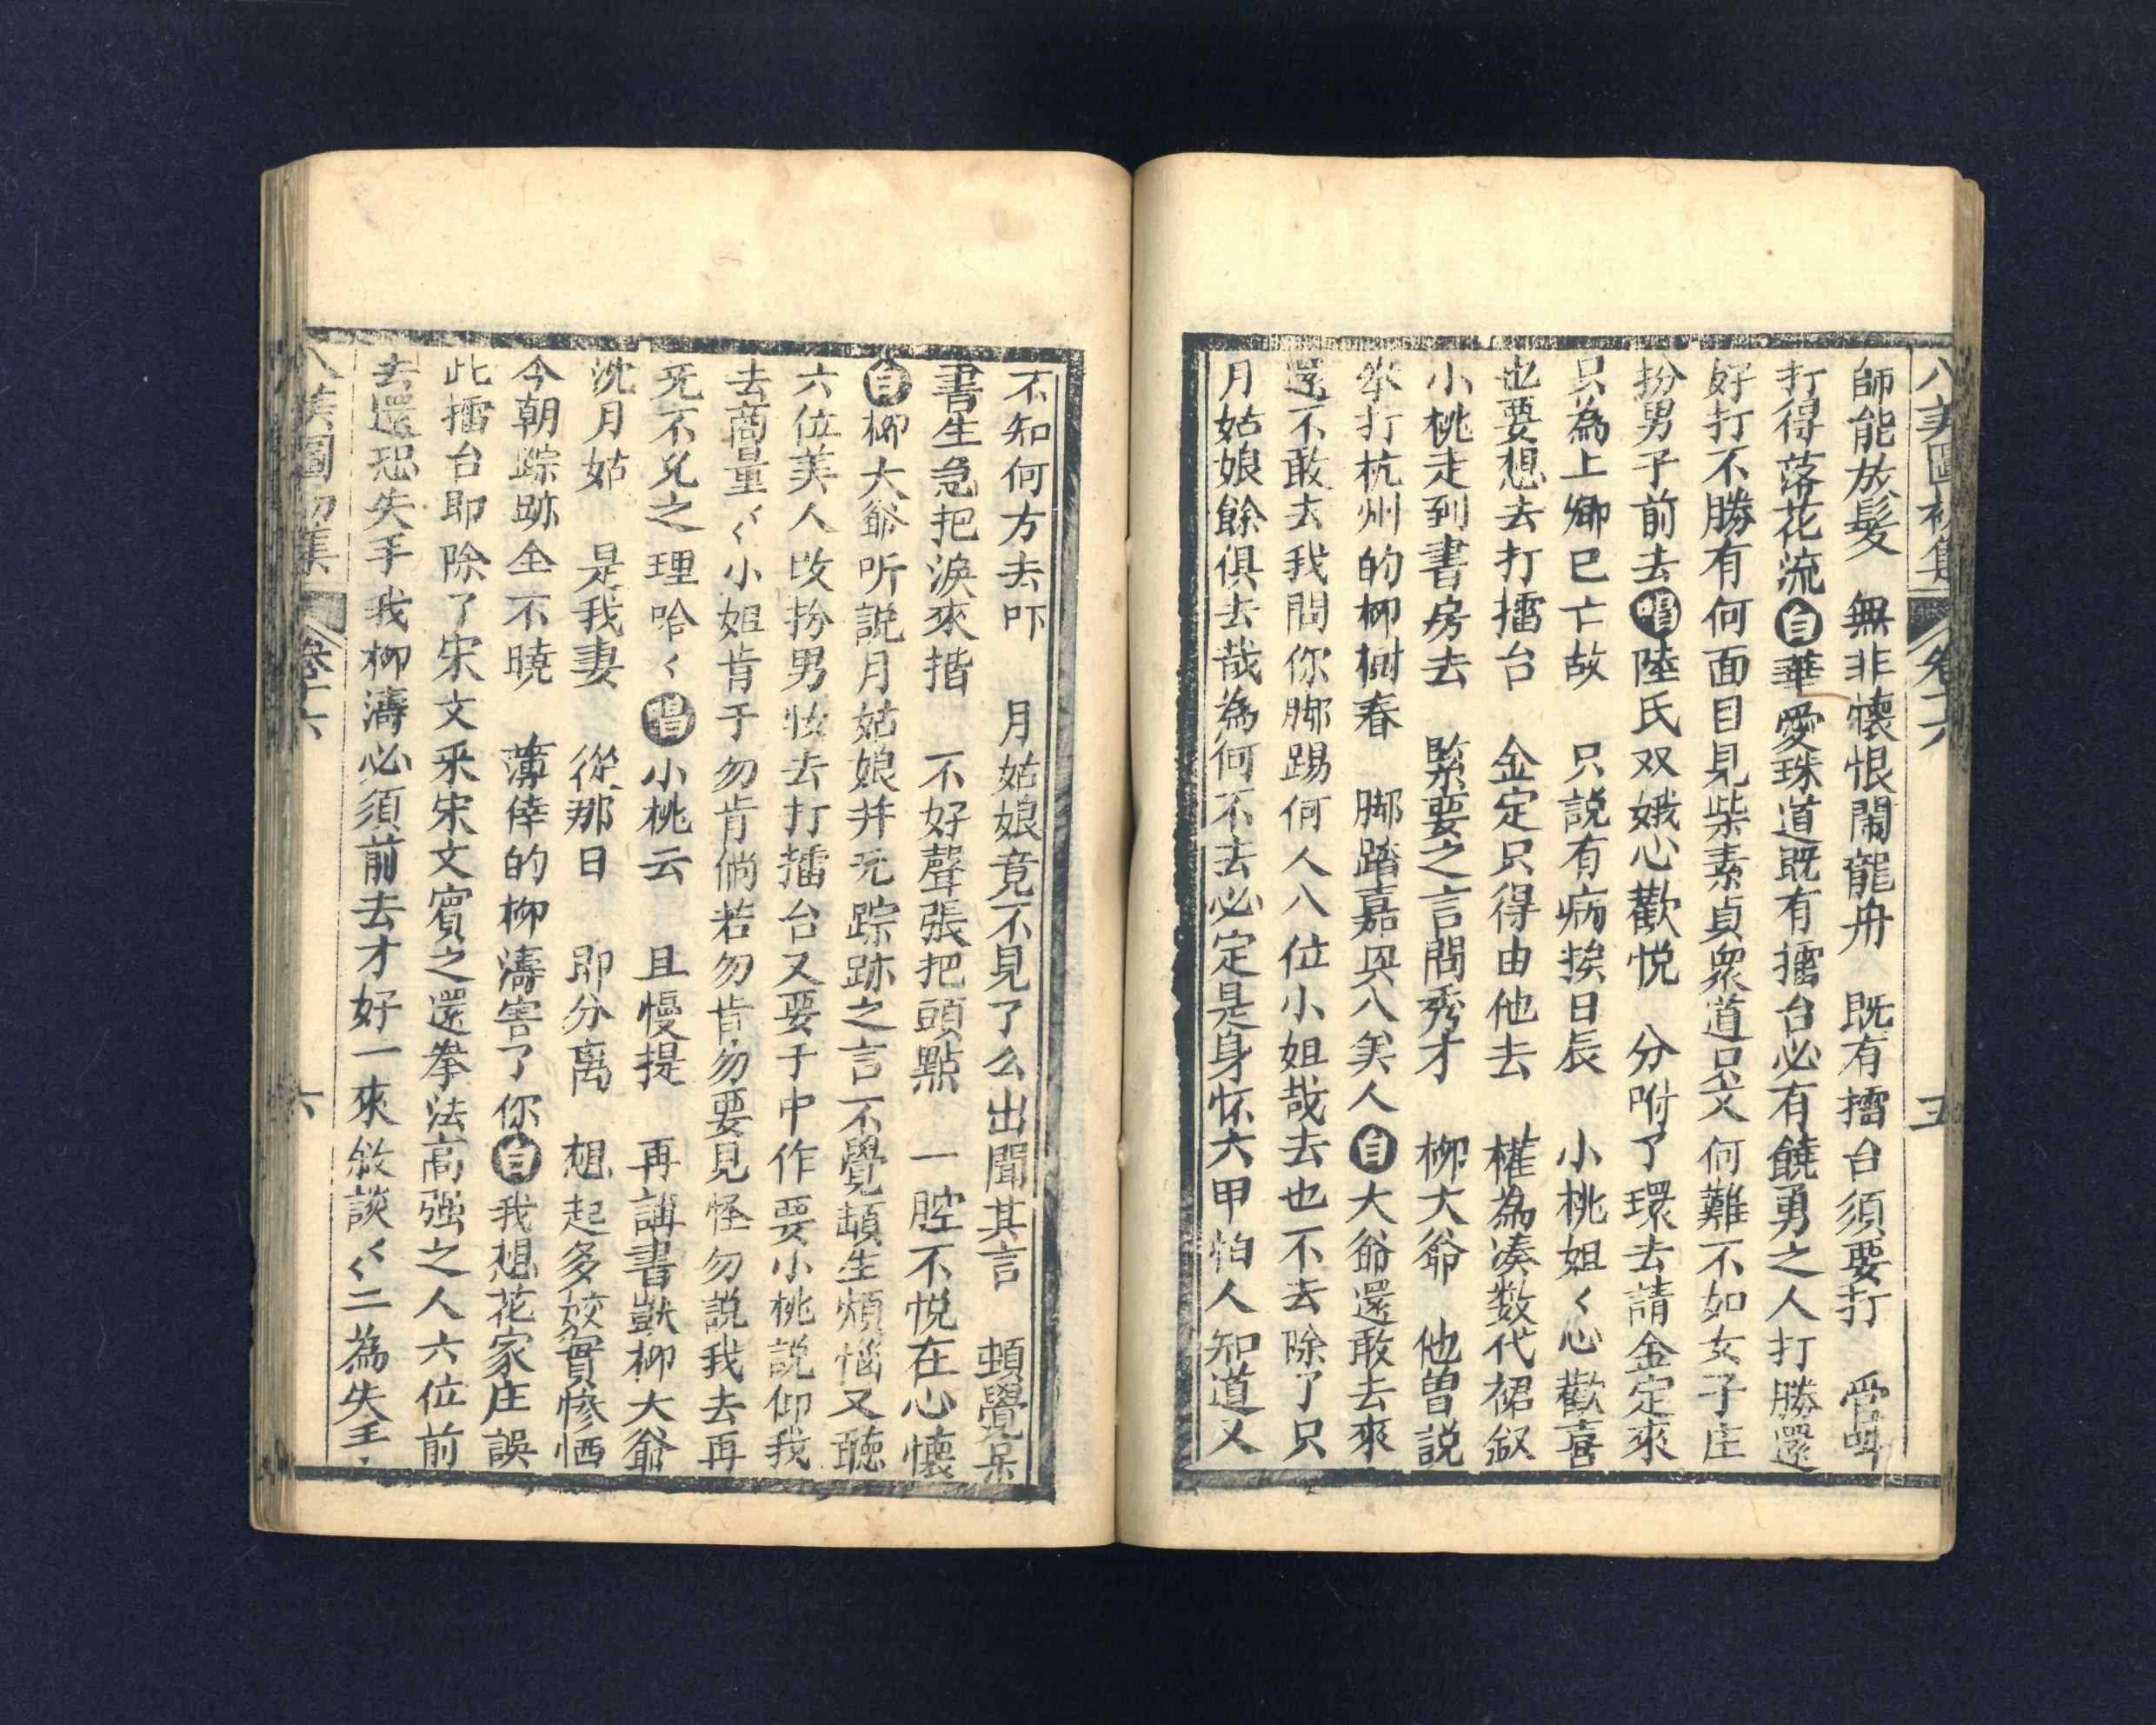 八美圖初集 卷十六 五
師能放髮 無非懐恨鬧龍舟 既有擂台須要打
打得落花流白華愛珠道既有擂台必有饒勇之人打勝還
好打不勝有何面目見柴素貞衆道只文何難不如女子庄
扮男子前去唱陸氏双娥心歡悦 分咐了環去請金定來
只為上卿已亡故 只説有病挨日辰 小桃姐〱心歡喜
也要想去打擂台 金定只得由他去 權為凑数代裙釵
小桃走到書房去 緊要之言問秀才 柳大爺 他曽説
拳打杭州的柳樹春 脚踏嘉興八美人白大爺還敢去來
還不敢去我問你脚踢何人八位小姐哉去也不去除了只
月姑娘餘俱去哉為何不去必定是身怀六甲怕人知道又
不知何方去吓 月姑娘竟不見了么出聞其言 頓覺呆
書生急把淚來揩 不好聲張把頭點 一腔不悦在心懐
白柳大爺听説月姑娘并无踪跡之言不覺頓生煩惱又聽
六位美人改扮男妝去打擂台又要于中作要小桃説仰我
去商量〱小姐肯于勿肯倘若勿肯勿要見怪勿説我去再
无不允之理哈〱唱小桃云 且慢提 再講書獃柳大爺
沈月姑 是我妻 從那日 即分离 想起多姣實慘恓
今朝踪跡全不曉 薄倖的柳濤害了你白我想花家庄誤
此擂台即除了宋文采宋文賓之還拳法高强之人六位前
去還恐失手我柳濤必須前去才好一來敘談〱二為失主
八美圖初集 卷十六 六